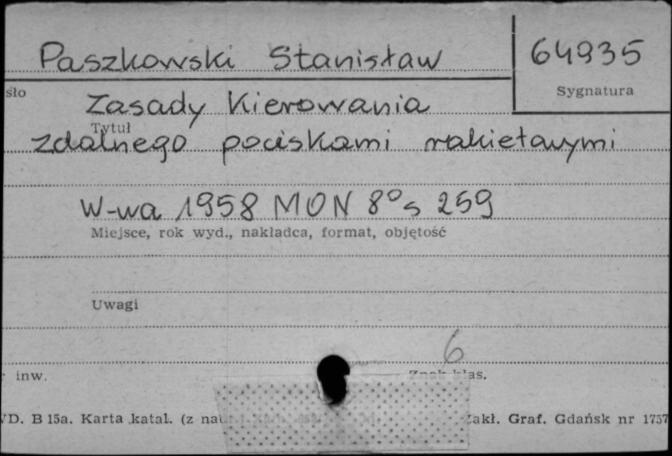 Paszkowski Stanisław 64935
Sygnatura
sło
Zasady Kierowania
Tytuł
zdalnego pociskami rakietowymi
W-wa 1958 MON 8° s 259
Miejsce, rok wyd., nakładca, format, objętość
Uwagi
6
inw. Znak klas.
D. B 15a. Karta katal. (z na Zakł. Graf. Gdańsk nr 1757